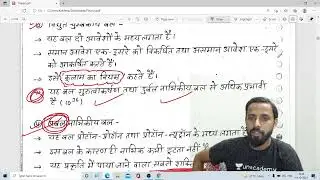 विद्युत चुम्बकीय बल -
→ यह बल दो आवेशों के मध्य लगता है।
→ समान आवेश एक-दूसरे को विकर्षित तथा असमान आवेश एक-दूसरे को आकर्षित करते हैं।
→ इसे कूलाम का नियम कहते हैं।
→ यह बल गुरुत्वाकर्षण तथा दुर्बल नाभिकीय बल से अधिक प्रभावी है
प्रबल नाभिकीय बल -
→ यह बल प्रोटॉन-प्रोटॉन तथा प्रोटॉन-न्यूट्रॉन के मध्य लगता है
→ इस बल के कारण ही नाभिक कभी टूटता नहीं
→ यह प्रकृति में पाया जाने वाला सबसे
unacademy